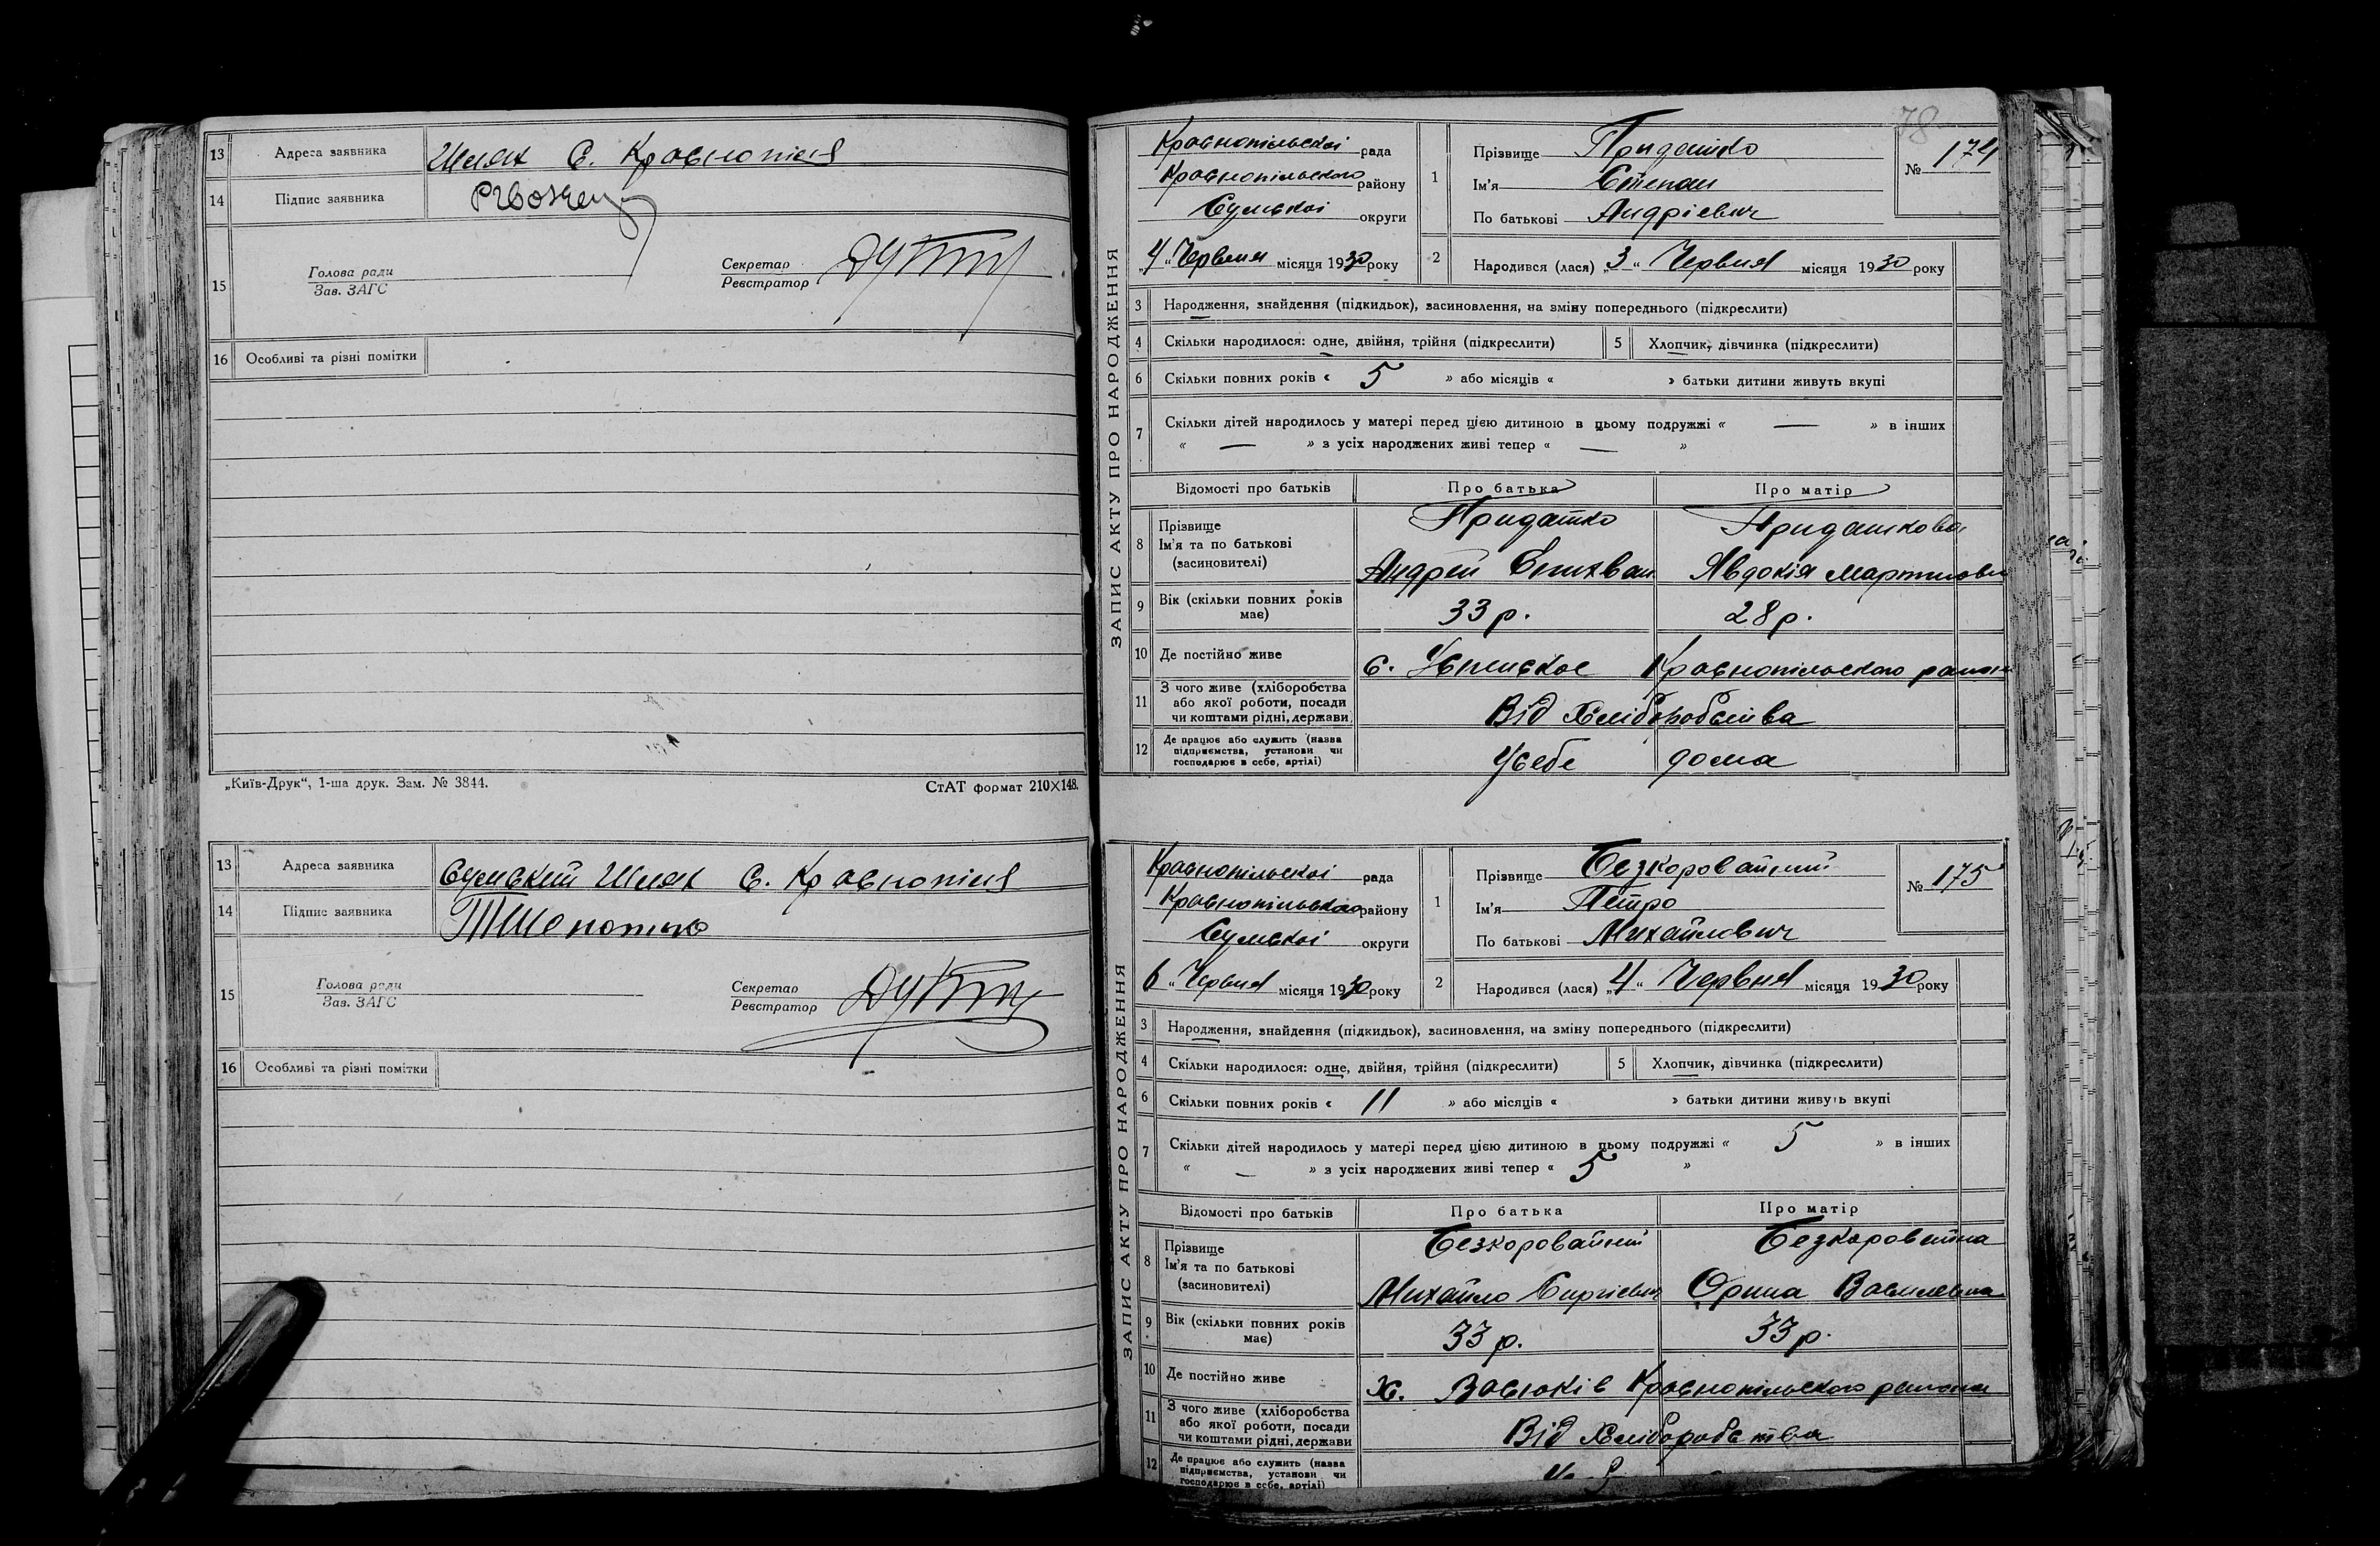 13 Адреса заявника Шлях С. Краснопілля
14 Підпис заявника
15 Голова ради
Зав. ЗАГС
Секретар
Реєстратор
16 Особливі та різні помітки
„Київ-Друк“, 1-ша друк. Зам. № 3844. СтАТ формат 210×148.
13 Адреса заявника Сумський Шлях С. Краснопілля
14 Підпис заявника
15 Голова ради
Зав. ЗАГС
Секретар
Реєстратор
16 Особливі та різні помітки
78
ЗАПИС АКТУ ПРО НАРОДЖЕННЯ
Краснопільскої рада
Краснопільского району
Сумської округи
„4“ Червня місяця 1930 року
1 Прізвище Придатко
Ім'я Степан
По батькові Андрієвич
№ 174
2 Народився (лася) „3“ Червня місяця 1930 року
3 Народження, знайдення (підкидьок), засиновлення, на зміну попереднього (підкреслити)
4 Скільки народилося: одне, двійня, трійня (підкреслити) 5 Хлопчик, дівчинка (підкреслити)
6 Скільки повних років « 5 » або місяців « » батьки дитини живуть вкупі
7 Скільки дітей народилось у матері перед цією дитиною в цьому подружжі « — » в інших
« — » з усіх народжених живі тепер « — »
Відомості про батьків Про батька Про матір
8 Прізвище Придатко Придаткова
Ім'я та по батькові
(засиновителі) Андрей Явдокія
9 Вік (скільки повних років має) 33 р. 28 р.
10 Де постійно живе с. Успенское Краснопільского района
11 З чого живе (хліборобства
або якої роботи, посади
чи коштами рідні, держави Від хліборобства
12 Де працює або служить (назва
підприємства, установи чи
господарює в себе, артілі) Усебе дома
ЗАПИС АКТУ ПРО НАРОДЖЕННЯ
Краснопільскої рада
Краснопільского району
Сумської округи
6 “ Червня місяця 1930 року
1 Прізвище Безкоровайний
Ім'я Петро
По батькові Михайлович
№ 175
2 Народився (лася) „4“ Червня місяця 1930 року
3 Народження, знайдення (підкидьок), засиновлення, на зміну попереднього (підкреслити)
4 Скільки народилося: одне, двійня, трійня (підкреслити) 5 Хлопчик, дівчинка (підкреслити)
6 Скільки повних років « 11 » або місяців « » батьки дитини живуть вкупі
7 Скільки дітей народилось у матері перед цією дитиною в цьому подружжі « 5 » в інших
« — » з усіх народжених живі тепер « 5 »
Відомості про батьків Про батька Про матір
8 Прізвище Безкоровайний Безкоровайна
Ім'я та по батькові
(засиновителі) Михайло Сиргієвич Орина Василевна
9 Вік (скільки повних років має) 33 р. 33 р.
10 Де постійно живе х. Васюків Краснопільского района
11 З чого живе (хліборобства
або якої роботи, посади
чи коштами рідні, держави Від хліборобства
12 Де працює або служить (назва
підприємства, установи чи
господарює в себе, артілі)